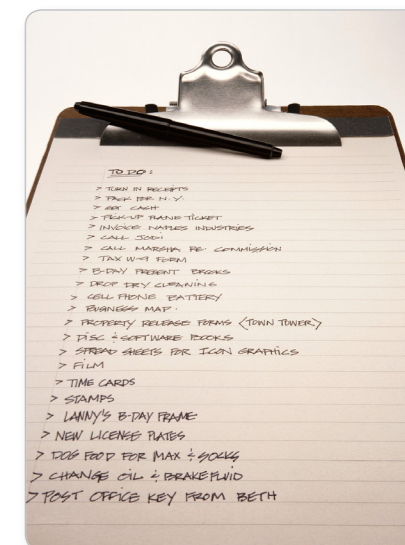 TO DO:
> TURN IN RECEIPTS
> PACK FOR N.Y.
> GET CASH
> PICK-UP PLANE TICKET
> INVOICE NAPLES INDUSTRIES
> CALL JODI
> CALL MARSHA RE COMMISSION
> TAX W-9 FORM
> B-DAY PRESENT BROOKS
> DROP DRY CLEANING
> CELL PHONE BATTERY
> BUSINESS MAP.
> PROPERTY RELEASE FORMS (TOWN TOWER)
> DISC & SOFTWARE BOOKS
> SPREAD SHEETS FOR ICON GRAPHICS
> FILM
> TIME CARDS
> STAMPS
> LANNY'S B-DAY FRAME
> NEW LICENSE PLATES
> DOG FOOD FOR MAX & SOCKS
> CHANGE OIL & BRAKE FLUID
> POST OFFICE KEY FROM BETH